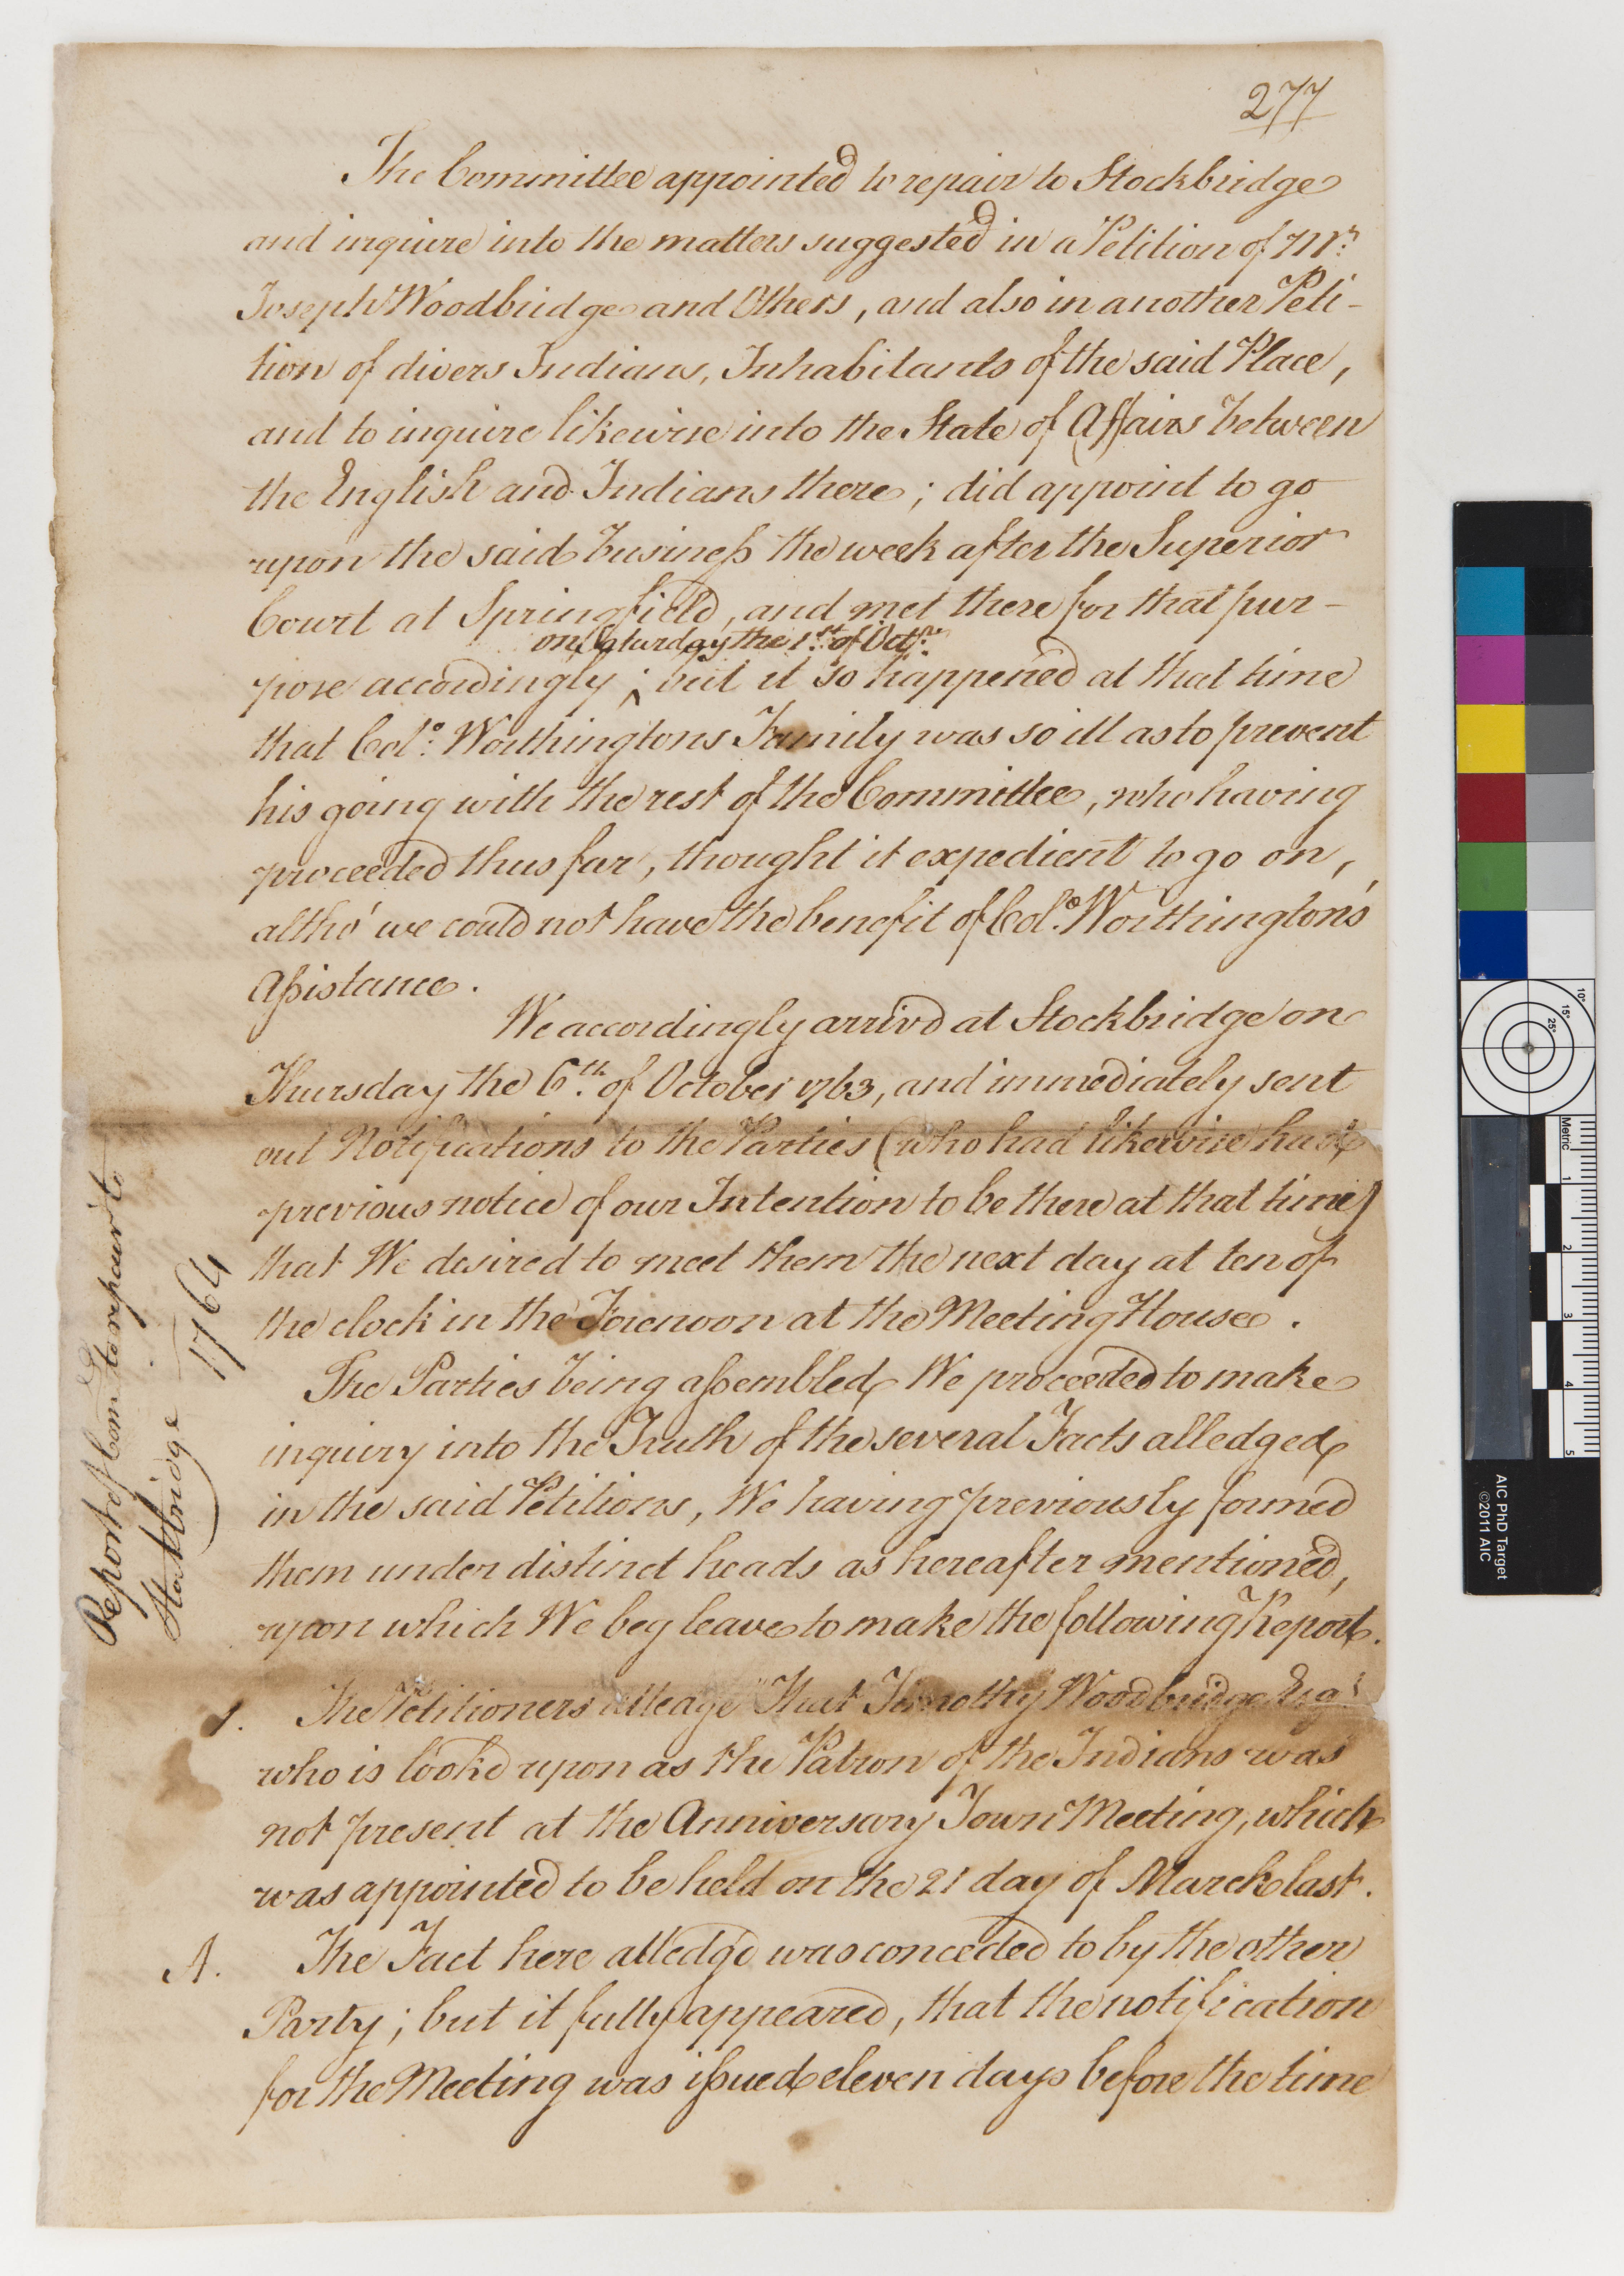 277
The Committee appointed to repair to Stockbridge
and inquire into the matters suggested in a Petition of Mr.
Joseph Woodbridge and Others, and also in another Peti-
tion of divers Indians, Inhabitants of the said Place,
and to inquire likewise into the State of Affairs between
the English and Indians there; did appoint to go
upon the said business the week after the Superior
Court at Springfield, and met there for that pur-
on Saturday the 1st. of Octr.
pose accordingly ^; but it so happened at that time
that Colo. Worthingtons Family was so ill as to prevent
his going with the rest of the Committee, who having
proceeded thus far, thought it expedient to go on,
altho' we could not have the benefit of Colo. Worthington's
Assistance.
We accordingly arrivd at Stockbridge on
Thursday the 6th. of October 1763, and immediately sent
out Notifications to the Parties (who had likewise had
previous notice of our Intention to be there at that time)
that We desired to meet them the next day at ten of
the clock in the Forenoon at the Meeting House.
The Parties being assembled We proceeded to make
inquiry into the Truth of the several Facts alledged
in the said Petitions, We having previously formed
them under distinct heads as hereafter mentioned,
upon which We beg leave to make the following Report.
1. The Petitioners alleage "That Timothy Woodbridge Esqr
who is look'd upon as the Patron of the Indians was
not present at the Anniversary Town Meeting, which
was appointed to be held on the 21 day of March last.
A. The Fact here alledgd was conceded to by the other
Party; but it fully appeared, that the notification
for the Meeting was issued eleven days before the time
Report of Comtee to repair to
Stockbridge. 1764
AIC PhD Target
©2011 AIC
Metric
1
2
3
4
5
10°
15°
25°